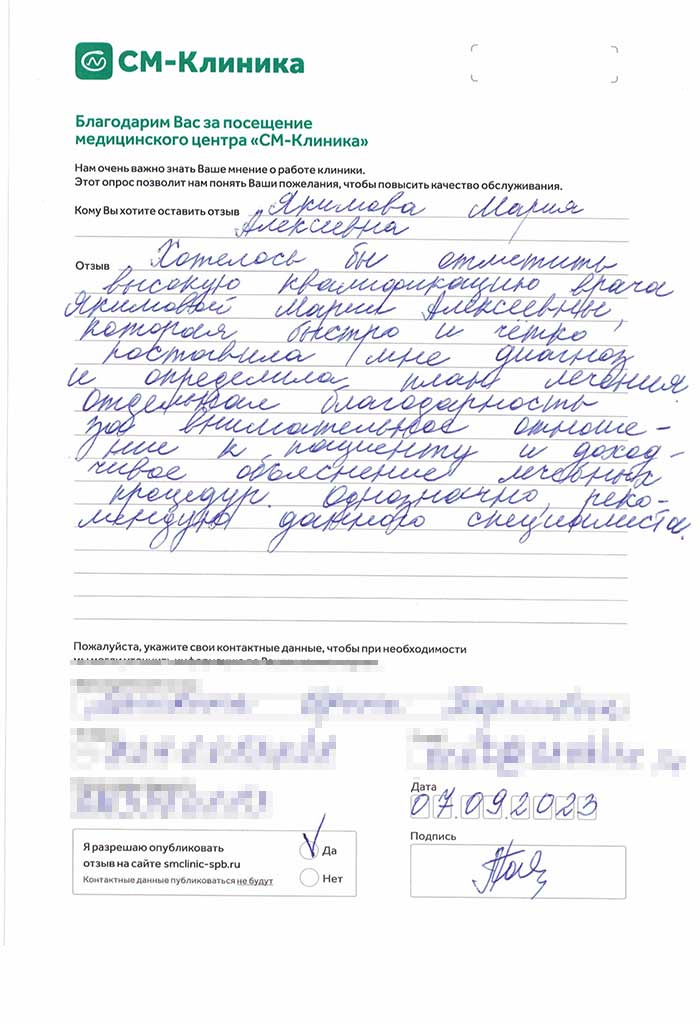 СМ-Клиника
Благодарим Вас за посещение
медицинского центра «СМ-Клиника»
Нам очень важно знать Ваше мнение о работе клиники.
Этот опрос позволит нам понять Ваши пожелания, чтобы повысить качество обслуживания.
Кому Вы хотите оставить отзыв Якимова Мария
Алексеевна
Отзыв Хотелось бы отметить
высокую квалификацию врача
Якимовой Марии Алексеевны,
которая быстро и чётко
поставила мне диагноз
и определила план лечения.
Отдельная благодарность
за внимательное отноше-
ние к пациенту и доход-
чивое объяснение лечебных
процедур. Однозначно реко-
мендую данного специалиста.
Пожалуйста, укажите свои контактные данные, чтобы при необходимости
Дата
07.09.2023
Я разрешаю опубликовать
отзыв на сайте smclinic-spb.ru
Контактные данные публиковаться не будут
Да
Нет
Подпись